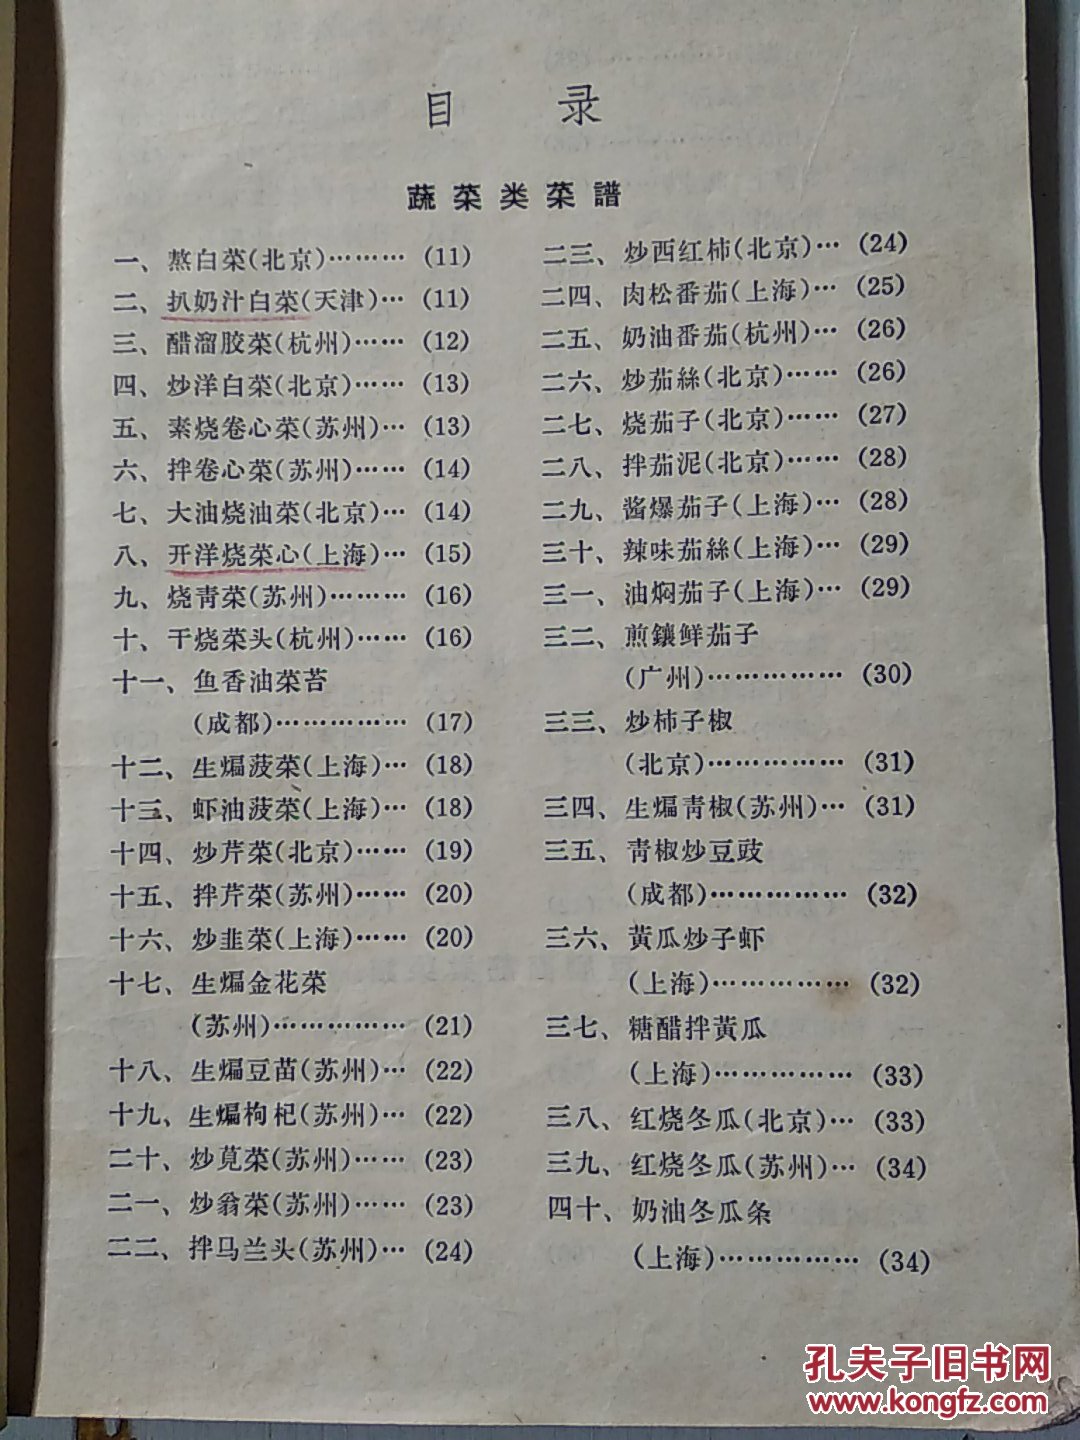 目 录
蔬菜类菜譜
一、熬白菜(北京)……… (11)
二、扒奶汁白菜(天津)… (11)
三、醋溜胶菜(杭州)…… (12)
四、炒洋白菜(北京)…… (13)
五、素烧卷心菜(苏州)… (13)
六、拌卷心菜(苏州)…… (14)
七、大油烧油菜(北京)… (14)
八、开洋烧菜心(上海)… (15)
九、烧青菜(苏州)……… (16)
十、干烧菜头(杭州)…… (16)
十一、鱼香油菜苔
(成都)…………… (17)
十二、生煸菠菜(上海)… (18)
十三、虾油菠菜(上海)… (18)
十四、炒芹菜(北京)…… (19)
十五、拌芹菜(苏州)…… (20)
十六、炒韭菜(上海)…… (20)
十七、生煸金花菜
(苏州)…………… (21)
十八、生煸豆苗(苏州)… (22)
十九、生煸枸杞(苏州)… (22)
二十、炒莧菜(苏州)…… (23)
二一、炒翁菜(苏州)…… (23)
二二、拌马兰头(苏州)… (24)
二三、炒西红柿(北京)… (24)
二四、肉松番茄(上海)… (25)
二五、奶油番茄(杭州)… (26)
二六、炒茄絲(北京)…… (26)
二七、烧茄子(北京)…… (27)
二八、拌茄泥(北京)…… (28)
二九、酱爆茄子(上海)… (28)
三十、辣味茄絲(上海)… (29)
三一、油焖茄子(上海)… (29)
三二、煎鑲鲜茄子
(广州)…………… (30)
三三、炒柿子椒
(北京)…………… (31)
三四、生煸青椒(苏州)… (31)
三五、青椒炒豆豉
(成都)…………… (32)
三六、黄瓜炒子虾
(上海)…………… (32)
三七、糖醋拌黄瓜
(上海)…………… (33)
三八、红烧冬瓜(北京)… (33)
三九、红烧冬瓜(苏州)… (34)
四十、奶油冬瓜条
(上海)…………… (34)
孔夫子旧书网
www.kongfz.com